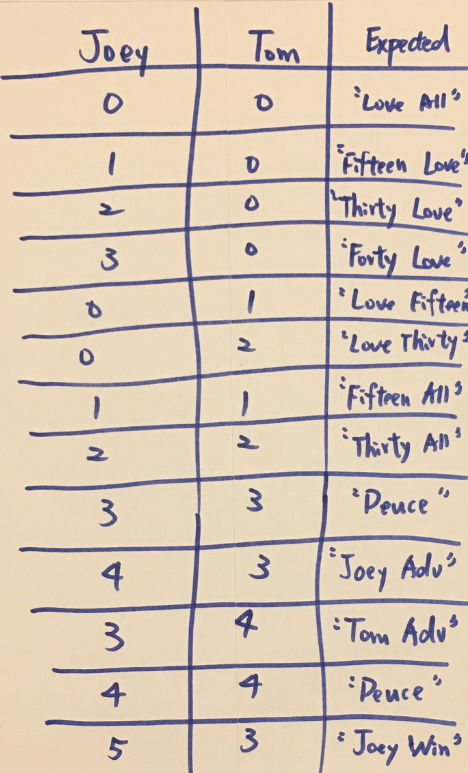 Joey Tom Expected
0 0 "Love All"
1 0 "Fifteen Love"
2 0 "Thirty Love"
3 0 "Forty Love"
0 1 "Love Fifteen
0 2 "Love Thirty"
1 1 "Fifteen All"
2 2 "Thirty All"
3 3 "Deuce"
4 3 "Joey Adv"
3 4 "Tom Adv"
4 4 "Deuce"
5 3 "Joey Win"